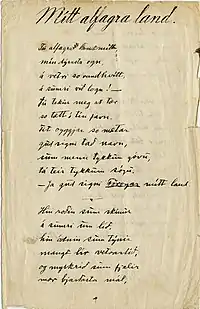 Mítt alfagra land.
Tú alfagra land mítt,
mín dýrasta ogn,
á vetri so randhvítt,
á sumri við logn! —
Tú tekur meg at tær
so tætt í tín favn.
Tit oyggjar so mætar
gud signi tað navn,
sum menn tykkum góvu,
tá teir tykkum sóvu.
— ja gud signi Föroyar mítt land
Hin roðin sum skínur
á sumri um lið,
hin ódnin sum týnir
mangt lív vetrartíð,
og myrkrið sum fjalir
mær bjartasta mál,